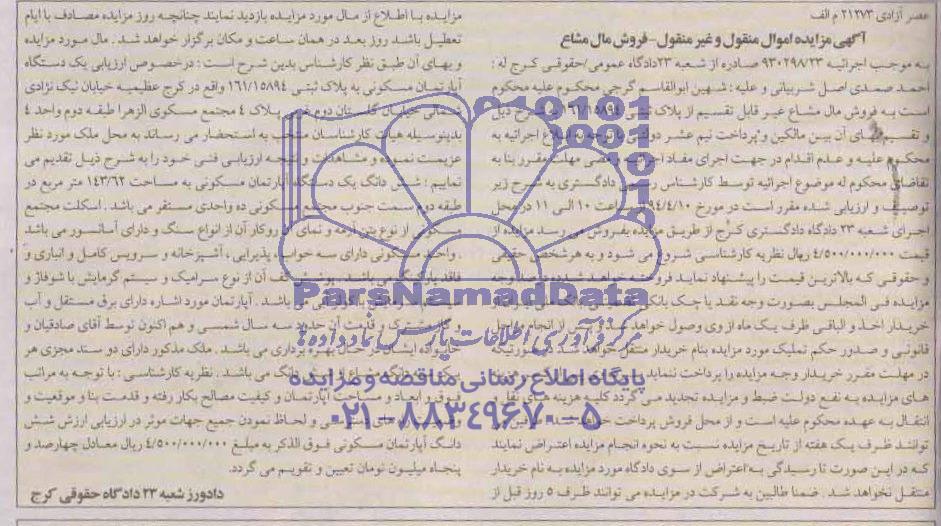 عصر آزادی ۲۱۲۷۳ م الف
آگهی مزایده اموال منقول و غیر منقول - فروش مال مشاع
به موجب اجرائیه ۹۳۰۲۹۸/۲۳ صادره از شعبه ۲۳ دادگاه عمومی/حقوقی کرج له :
احمد صمدی اصل شربیانی و علیه : شهین ابوالقاسم گرجی محکوم علیه محکوم
است به فروش مال مشاع غیر قابل تقسیم از پلاک ثبتی ۱۶۱/۱۵۸۹۴ به شرح ذیل
و تقسیم بهای آن بین مالکین و پرداخت نیم عشر دولتی با توجه به ابلاغ اجرائیه به
محکوم علیه و عدم اقدام در جهت اجرای مفاد اجرائیه مهلت مقرر بنا به
تقاضای محکوم له موضوع اجرائیه توسط کارشناس رسمی دادگستری به شرح زیر
توصیف و ارزیابی شده مقرر است در مورخ ۹۴/۴/۱۰ از ساعت ۱۰ الی ۱۱ در محل
اجرای شعبه ۲۳ دادگاه دادگستری کرج از طریق مزایده بفروش می رسد مزایده از
قیمت ۴/۵۰۰/۰۰۰/۰۰۰ ریال نظریه کارشناسی شروع می شود و به هر شخص حقیقی
و حقوقی که بالاترین قیمت را پیشنهاد نماید فروخته خواهد شد
مزایده فی المجلس بصورت وجه نقد یا چک بانکی
خریدار اخذ و الباقی ظرف یک ماه از وی وصول خواهد شد و پس از انجام مراحل
قانونی و صدور حکم تملیک مورد مزایده بنام خریدار منتقل خواهد شد در صورتیکه
در مهلت مقرر خریدار وجه مزایده را پرداخت ننماید
های مزایده به نفع دولت ضبط و مزایده تجدید می گردد کلیه هزینه های نقل و
انتقال به عهده محکوم علیه است و از محل فروش پرداخت خواهد شد
توانند ظرف یک هفته از تاریخ مزایده نسبت به نحوه انجام مزایده اعتراض نمایند
که در این صورت تا رسیدگی به اعتراض از سوی دادگاه مورد مزایده به نام خریدار
منتقل نخواهد شد . ضمنا طالبین به شرکت در مزایده می توانند ظرف ۵ روز قبل از
مزایده با اطلاع از مال مورد مزایده بازدید نمایند چنانچه روز مزایده مصادف با ایام
تعطیل باشد روز بعد در همان ساعت و مکان برگزار خواهد شد . مال مورد مزایده
و بهای آن طبق نظر کارشناس بدین شرح است : درخصوص ارزیابی یک دستگاه
آپارتمان مسکونی به پلاک ثبتی ۱۶۱/۱۵۸۹۴ واقع در کرج عظیمیه خیابان نیک نژادی
شمالی خیابان گلستان دوم غربی پلاک ۴ مجتمع مسکونی الزهرا طبقه دوم واحد ۴
بدینوسیله هیات کارشناسان منتخب به استحضار می رساند به محل ملک مورد نظر
عزیمت نموده و مشاهدات و نتیجه ارزیابی فنی خود را به شرح ذیل تقدیم می
نماییم : شش دانگ یک دستگاه آپارتمان مسکونی به مساحت ۱۴۳/۶۲ متر مربع در
طبقه دوم سمت جنوب مجتمع مسکونی ده واحدی مستقر می باشد . اسکلت مجتمع
مسکونی از نوع بتن آرمه و نمای آن روکار آن از انواع سنگ و دارای آسانسور می باشد
. واحد مسکونی دارای سه خواب، پذیرایی ، آشپزخانه و سرویس کامل و انباری و
فاقد پارکینگ می باشد . پوشش کف آن از نوع سرامیک و سیستم گرمایش با شوفاژ و
می باشد . آپارتمان مورد اشاره دارای برق مستقل و آب
و گاز مشترک و قدمت آن حدود سه سال شمسی و هم اکنون توسط آقای صادقیان و
خانواده ایشان در حال بهره برداری می باشد . ملک مذکور دارای دو سند مجزی هر
یک دانگ می باشد . نظریه کارشناسی : با توجه به مراتب
فوق و ابعاد و مساحت آپارتمان و کیفیت مصالح بکار رفته و قدمت بنا و موقعیت و
و لحاظ نمودن جمیع جهات موثر در ارزیابی ارزش شش
دانگ آپارتمان مسکونی فوق الذکر به مبلغ ۴/۵۰۰/۰۰۰/۰۰۰ ریال معادل چهارصد و
پنجاه میلیون تومان تعیین و تقویم می گردد.
دادورز شعبه ۲۳ دادگاه حقوقی کرج
ParsNamadData
مرکز فرآوری اطلاعات پارس نماد داده ها
پایگاه اطلاع رسانی مناقصه و مزایده
۰۲۱-۸۸۳۴۹۶۷۰-۵